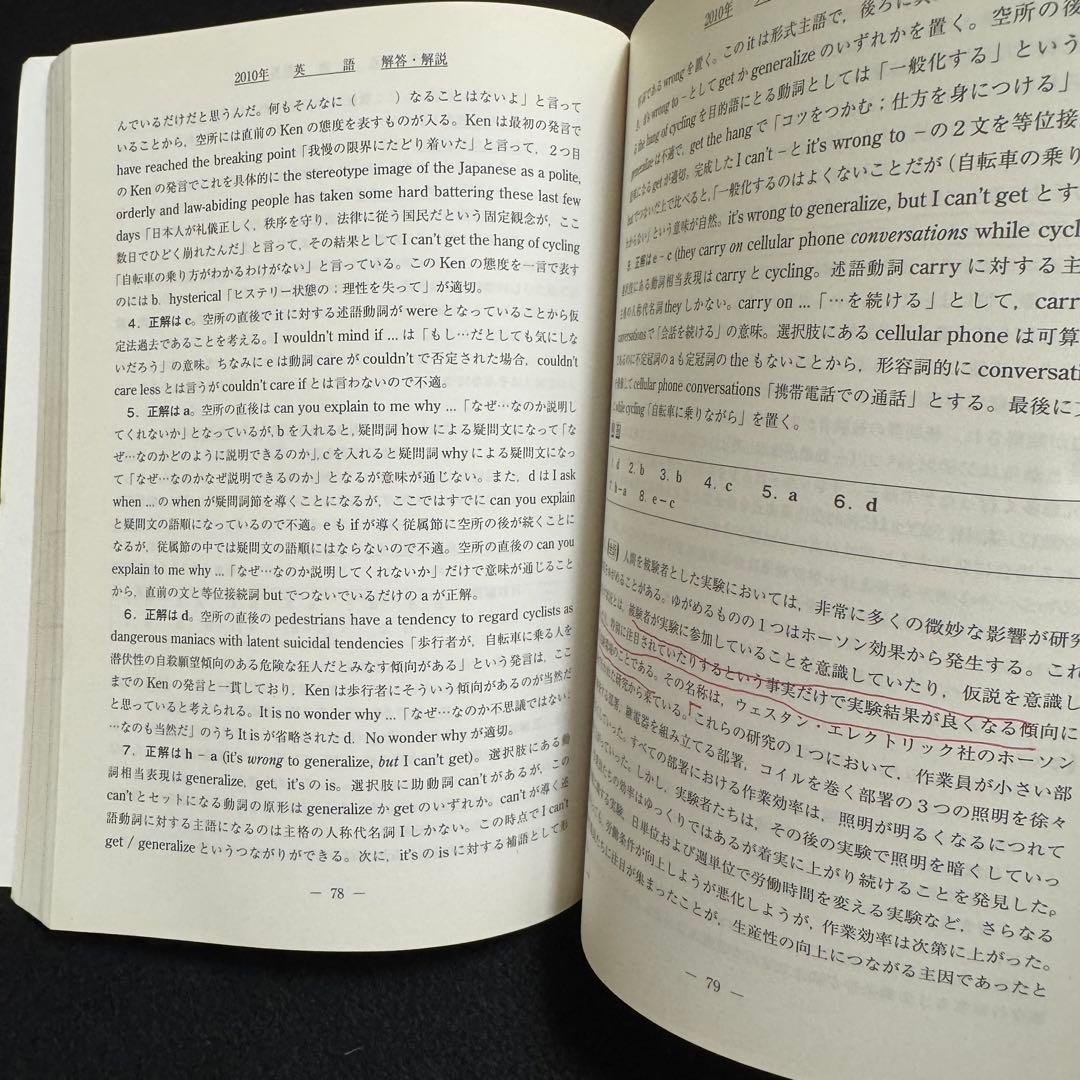 2010年 英 語 解答・解説
んでいるだけだと思うんだ。何もそんなに( )なることはないよ」と言って
いることから，空所には直前の Ken の態度を表すものが入る。Ken は最初の発言で
have reached the breaking point「我慢の限界にたどり着いた」と言って，2つ目
の Ken の発言でこれを具体的に the stereotype image of the Japanese as a polite,
orderly and law-abiding people has taken some hard battering these last few
days「日本人が礼儀正しく，秩序を守り，法律に従う国民だという固定観念が，ここ
数日でひどく崩れたんだ」と言って，その結果として I can't get the hang of cycling
「自転車の乗り方がわかるわけがない」と言っている。この Ken の態度を一言で表す
のには b．hysterical「ヒステリー状態の；理性を失って」が適切。
4．正解は c。空所の直後で it に対する述語動詞が were となっていることから仮
定法過去であることを考える。I wouldn't mind if ... は「もし…だとしても気にしな
いだろう」の意味。ちなみに e は動詞 care が couldn't で否定された場合，couldn't
care less とは言うが couldn't care if とは言わないので不適。
5．正解は a。空所の直後は can you explain to me why ...「なぜ…なのか説明し
てくれないか」となっているが，b を入れると，疑問詞 how による疑問文になって「な
ぜ…なのかどのように説明できるのか」，c を入れると疑問詞 why による疑問文になっ
て「なぜ…なのかなぜ説明できるのか」となるが意味が通じない。また，d は I ask
when ... の when が疑問詞節を導くことになるが，ここではすでに can you explain
と疑問文の語順になっているので不適。e も if が導く従属節に空所の後が続くことに
なるが，従属節の中では疑問文の語順にはならないので不適。空所の直後の can you
explain to me why ...「なぜ…なのか説明してくれないか」だけで意味が通じること
から，直前の文と等位接続詞 but でつないでいるだけの a が正解。
6．正解は d。空所の直後の pedestrians have a tendency to regard cyclists as
dangerous maniacs with latent suicidal tendencies「歩行者が，自転車に乗る人を
潜伏性の自殺願望傾向のある危険な狂人だとみなす傾向がある」という発言は，ここ
までの Ken の発言と一貫しており，Ken は歩行者にそういう傾向があるのが当然だ
と思っていると考えられる。It is no wonder why ...「なぜ…なのか不思議ではない；
…なのも当然だ」のうち It is が省略された d．No wonder why が適切。
7．正解は h－a (it's wrong to generalize, but I can't get)。選択肢にある動
詞相当表現は generalize，get，it's の is。選択肢に助動詞 can't があるが，この
can't とセットになる動詞の原形は generalize か get のいずれか。can't が導く述
語動詞に対する主語になるのは主格の人称代名詞 I しかない。この時点で I can't
get / generalize というつながりができる。次に，it's の is に対する補語として形
― 78 ―
2010年
である wrong を置く。この it は形式主語で，後ろに
wrong to －として get か generalize のいずれかを置く。空所の後
the hang of cycling を目的語にとる動詞としては「一般化する」という
generalize は不適で，get the hang で「コツをつかむ；仕方を身につける」
get が適切。完成した I can't －と it's wrong to －の2文を等位接
but でつないだ上で比べると，「一般化するのはよくないことだが(自転車の乗り
からない」という意味が自然。it's wrong to generalize, but I can't get とす
8．正解は e－c (they carry on cellular phone conversations while cycl
にある動詞相当表現は carry と cycling。述語動詞 carry に対する主
の人称代名詞 they しかない。carry on ...「…を続ける」として，carr
conversations で「会話を続ける」の意味。選択肢にある cellular phone は可算
であるのに不定冠詞の a も定冠詞の the もないことから，形容詞的に conversati
して cellular phone conversations「携帯電話での通話」とする。最後に
while cycling「自転車に乗りながら」を置く。
d 2．b 3．b 4．c 5．a 6．d
h－a 8．e－c
人間を被験者とした実験においては，非常に多くの微妙な影響が研究
ゆがめることがある。ゆがめるものの1つはホーソン効果から発生する。これ
とは，被験者が実験に参加していることを意識していたり，仮説を意識し
に注目されていたりするという事実だけで実験結果が良くなる傾向に
のことである。その名称は，ウェスタン・エレクトリック社のホーソン
研究から来ている。これらの研究の1つにおいて，作業員が小さい部
部署，継電器を組み立てる部署，コイルを巻く部署の3つの照明を徐々
していった。すべての部署における作業効率は，照明が明るくなるにつれて
っていった。しかし，実験者たちは，その後の実験で照明を暗くしていっ
たちの効率はゆっくりではあるが着実に上がり続けることを発見した。
実験，日単位および週単位で労働時間を変える実験など，さらなる
も，労働条件が向上しようが悪化しようが，作業効率は次第に上がった。
たちに注目が集まったことが，生産性の向上につながる主因であったと
― 79 ―